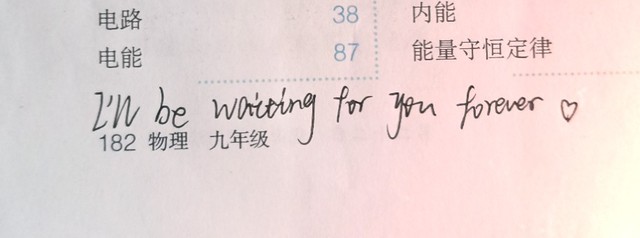 电路 38 内能
电能 87 能量守恒定律
I'll be waiting for you forever ♡
182 物理 九年级